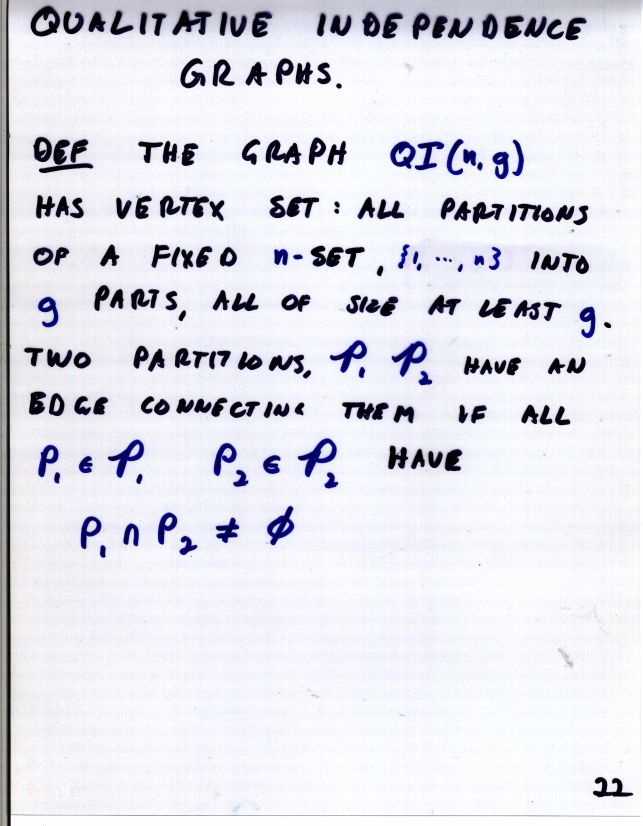 QUALITATIVE INDEPENDENCE
GRAPHS.
DEF THE GRAPH QI(n,g)
HAS VERTEX SET: ALL PARTITIONS
OF A FIXED n-SET, {1, ..., n} INTO
g PARTS, ALL OF SIZE AT LEAST g.
TWO PARTITIONS, 𝒫₁ 𝒫₂ HAVE AN
EDGE CONNECTING THEM IF ALL
P₁ ∈ 𝒫₁ P₂ ∈ 𝒫₂ HAVE
P₁ ∩ P₂ ≠ ∅
22